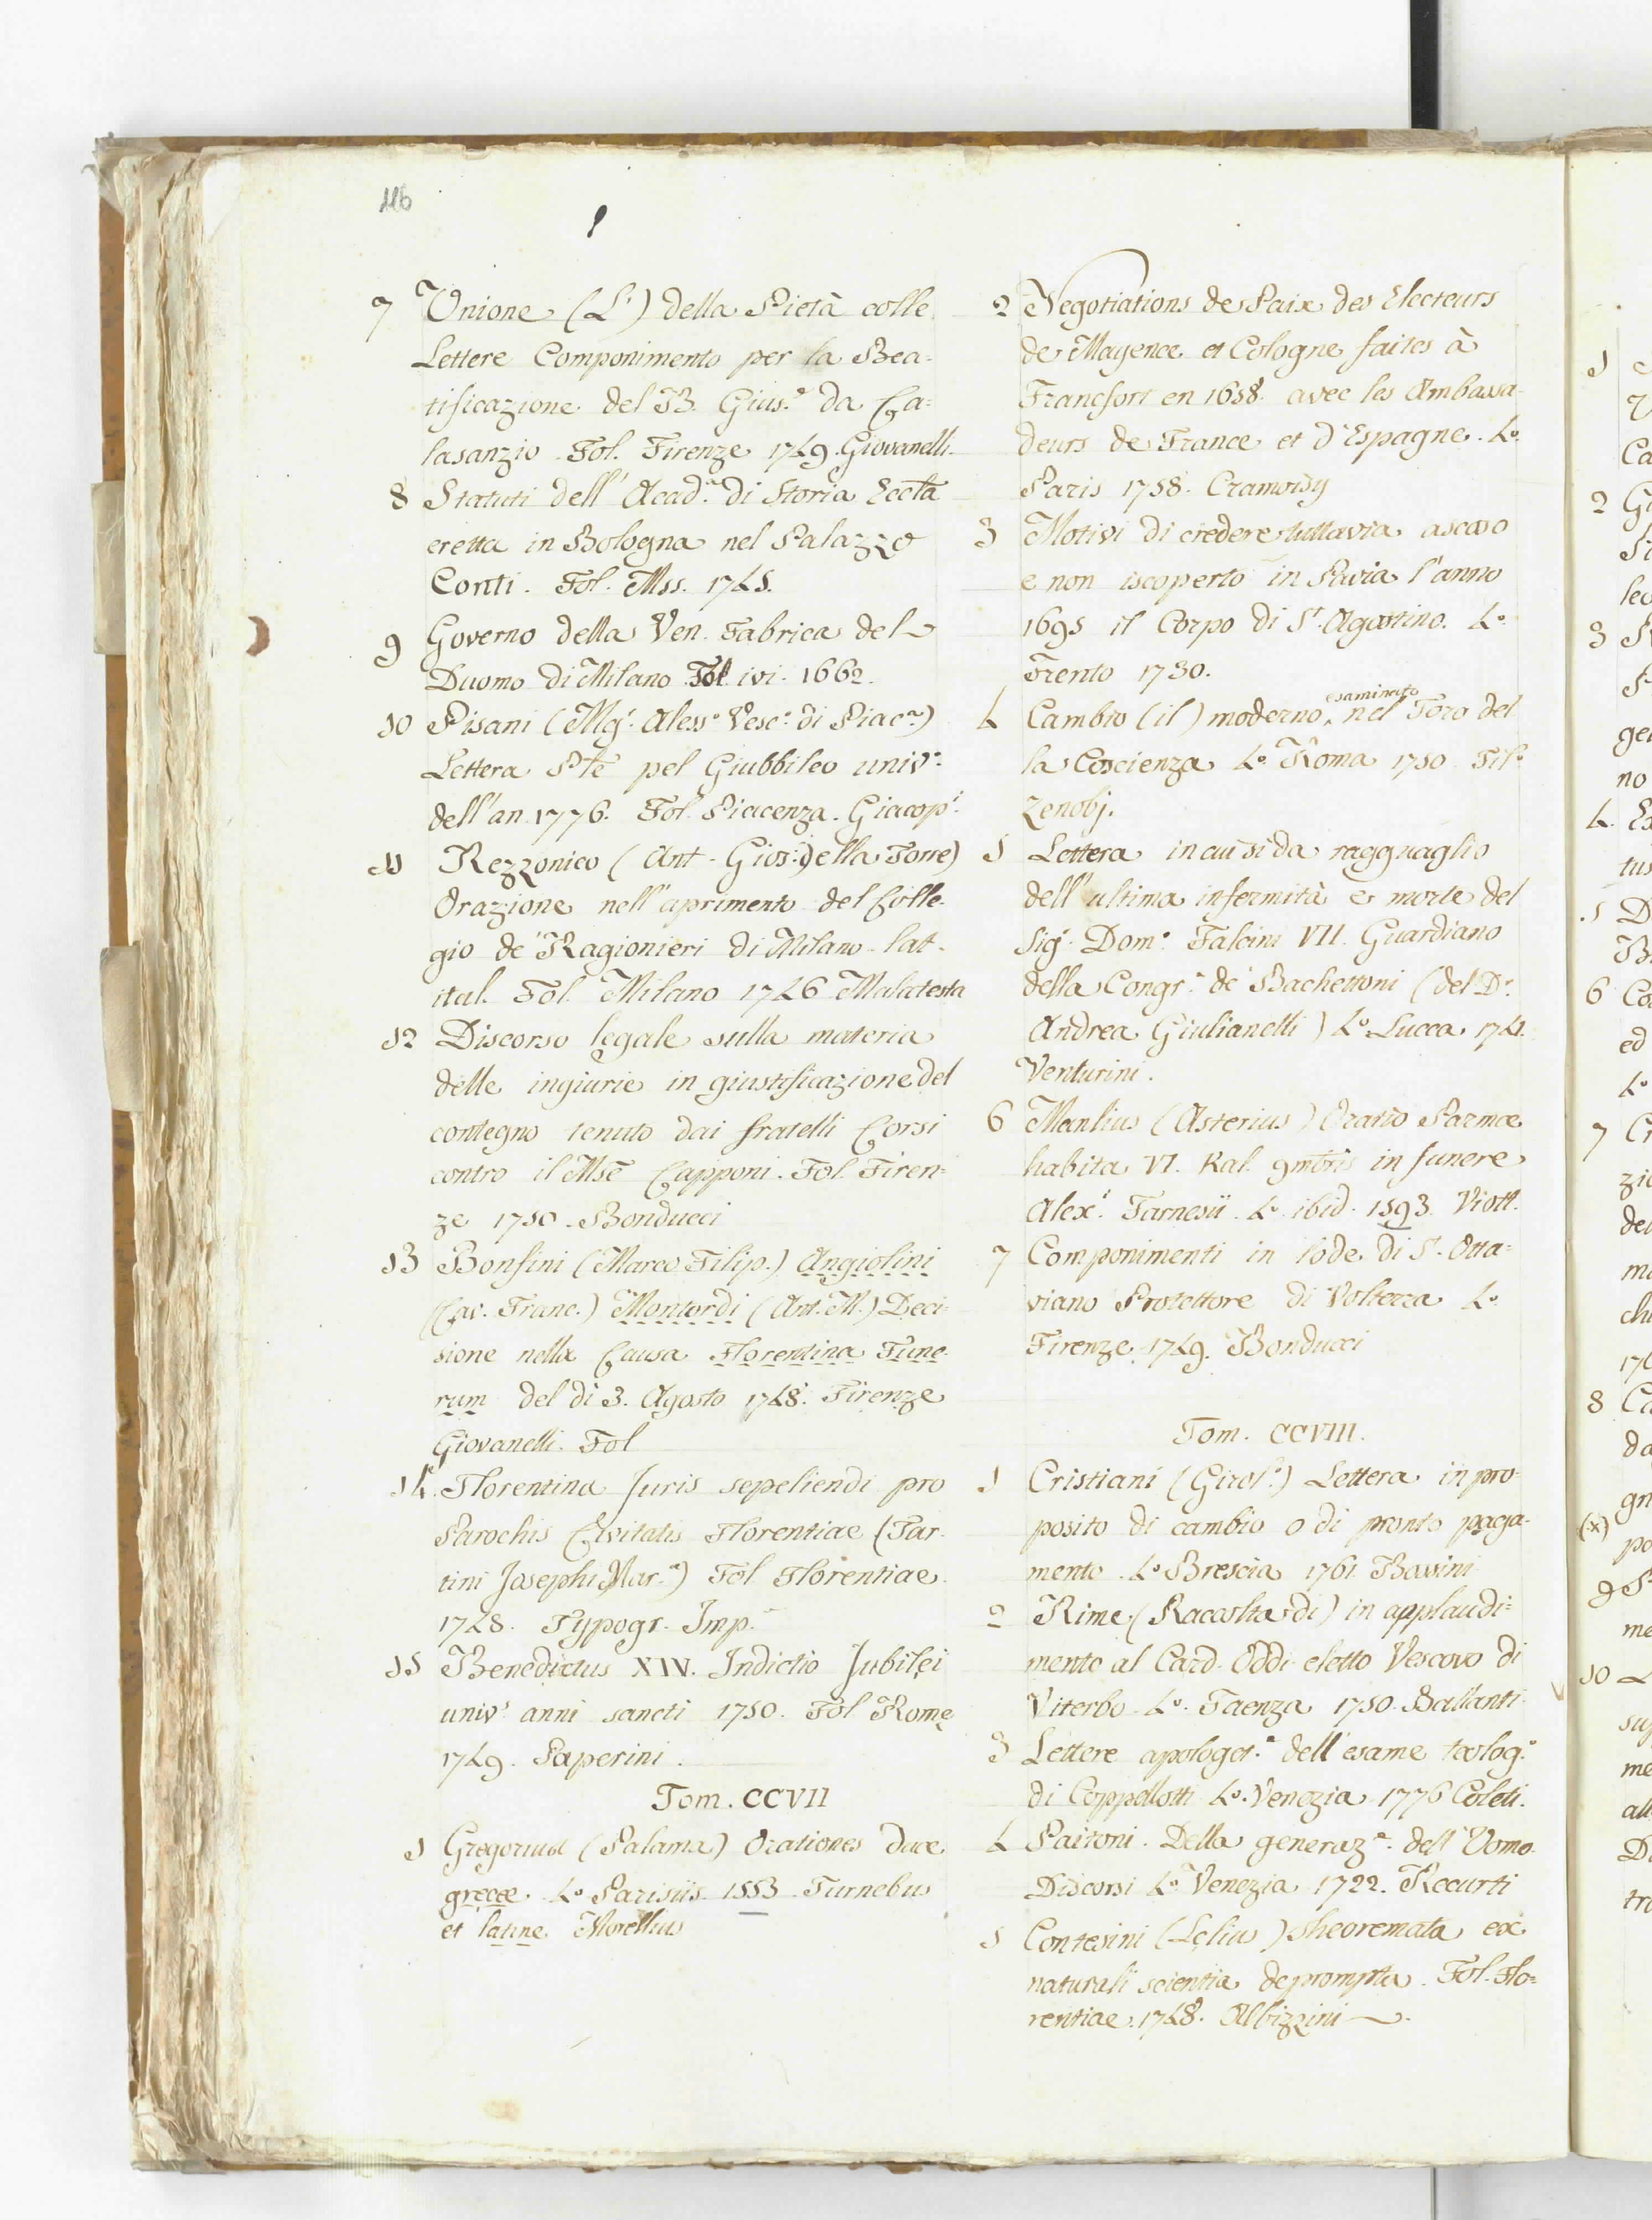 116
7 Unione (L') della Pietà colle
Lettere Componimento per la Bea=
tificazione del B. Gius.e da Ca=
lasanzio Fol. Firenze 1749. Giovanelli.
8 Statuti dell' Acad.a di Storia Eccla
eretta in Bologna nel Palazzo
Conti. Fol. Mss. 1745.
9 Governo della Ven. Fabrica del
Duomo di Milano Fol ivi. 1662.
10 Pisani (Mg.r Aless.o Vesc.o di Piac.a)
Lettera Ple pel Giubbileo univ.e
dell' an. 1776. Fol. Piacenza. Giacop.i
11 Rezzonico (Ant. Gios: Della Torre)
Orazione nell' aprimento del Colle-
gio de' Ragionieri di Milano lat.
ital. Fol. Milano 1746 Malatesta
12 Discorso legale sulla materia
delle ingiurie in giustificazione del
contegno tenuto dai fratelli Corsi
contro il Mse Capponi. Fol. Firen=
ze 1750. Bonducci
13 Bonfini (Marco Filip.) Angiolini
(Cav. Franc.) Montordi (Ant. M.) Deci=
sione nella Causa Florentina Fune-
rum del dì 3. Agosto 1748. Firenze
Giovanelli. Fol
14. Florentina Juris sepeliendi pro
Parochis Civitatis Florentiae (Tar-
tini Josephi Mar.a) Fol Florentiae
1748. Typogr. Imp.
15 Benedictus XIV. Indictio Jubilęi
univ.s anni sancti 1750. Fol Romę
1749. Paperini.
Tom. CCVII
1 Gregorius (Palama) Orationes duae
gręcae. 4.o Parisiis 1553 Turnebus
et latine Morellius
2 Negotiations de Paix des Electeurs
de Mayence et Cologne faites à
Francfort en 1658. avec les Ambassa-
deurs de France et d'Espagne. 4.o
Paris 1758. Cramoisy
3 Motivi di credere tuttavia ascoso
e non iscoperto in Pavia l'anno
1695 il Corpo di S.t Agostino. 4.o
Trento 1730.
4 Cambio (il) moderno esaminato nel Foro del
la Coscienza 4.o Roma 1750 Fil.o
Zenobj.
5 Lettera in cui si da ragguaglio
dell' ultima infermità e morte del
Sig.r Dom.o Falcini VII. Guardiano
della Congr.e de' Bachettoni (del D.r
Andrea Giulianelli) 4.o Lucca. 1741.
Venturini.
6 Manlius (Asterius) Oratio Parmae
habita VI. Kal. 9mbris in funere
Alex.i Farnesii 4.o ibid. 1593. Viott.
7 Componimenti in lode di S.t Otta=
viano Protettore di Volterra 4.o
Firenze 1749. Bonducci
Tom. CCVIII.
1 Cristiani (Girol.o) Lettera in pro-
posito di cambio o di pronto paga-
mento. 4.o Brescia 1761 Bassini
2 Rime (Raccolta di) in applaudi=
mento al Card. Oddi eletto Vescovo di
Viterbo 4.o Faenza 1750. Ballanti
3 Lettere apologet.e dell' esame teolog.o
di Coppellotti 4.o Venezia 1776 Coleti.
4 Paitoni. Della generaz.e dell' Uomo
Discorsi 4.o Venezia 1722. Recurti
5 Contesini (Lelius) Theoremata ex
naturali scientia deprompta. Fol. Flo=
rentiae. 1748. Albizzini